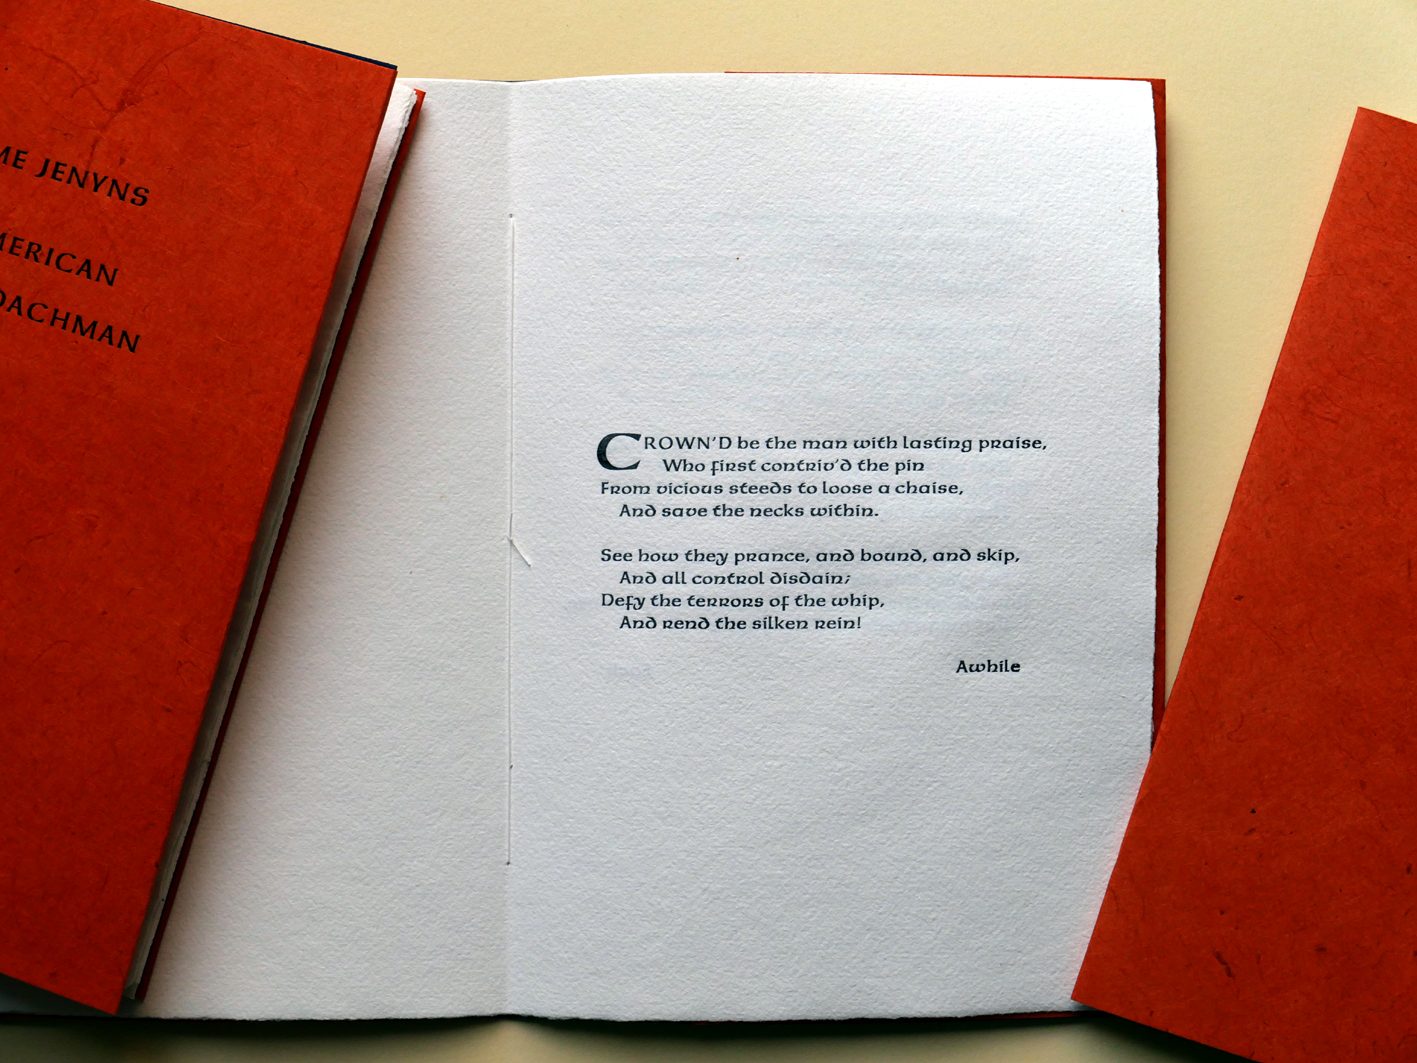 JENYNS
CROWN'D be the man with lasting praise,
Who first contriv'd the pin
From vicious steeds to loose a chaise,
And save the necks within.
See how they prance, and bound, and skip,
And all control disdain;
Defy the terrors of the whip,
And rend the silken rein!
Awhile